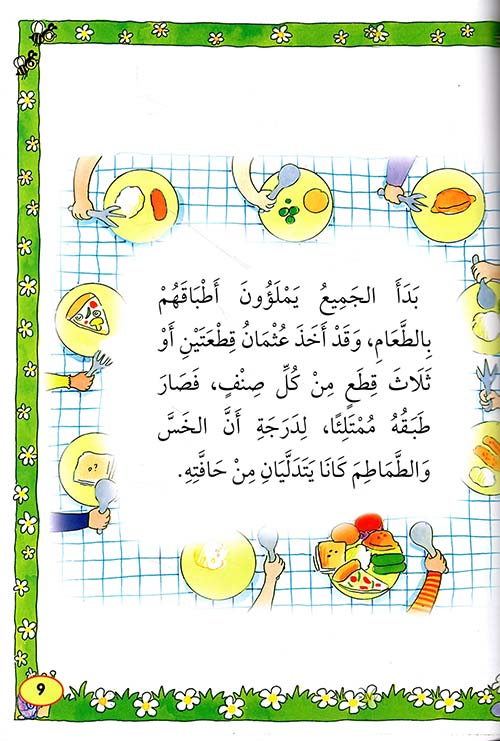 بَدَأَ الجَمِيعُ يَمْلَؤُونَ أَطْبَاقَهُمْ
بِالطَّعَامِ، وَقَدْ أَخَذَ عُثْمَانُ قِطْعَتَيْنِ أَوْ
ثَلَاثَ قِطَعٍ مِنْ كُلِّ صِنْفٍ، فَصَارَ
طَبَقُهُ مُمْتَلِئًا، لِدَرَجَةِ أَنَّ الخَسَّ
وَالطَّمَاطِمَ كَانَا يَتَدَلَّيَانِ مِنْ حَافَّتِهِ.
9